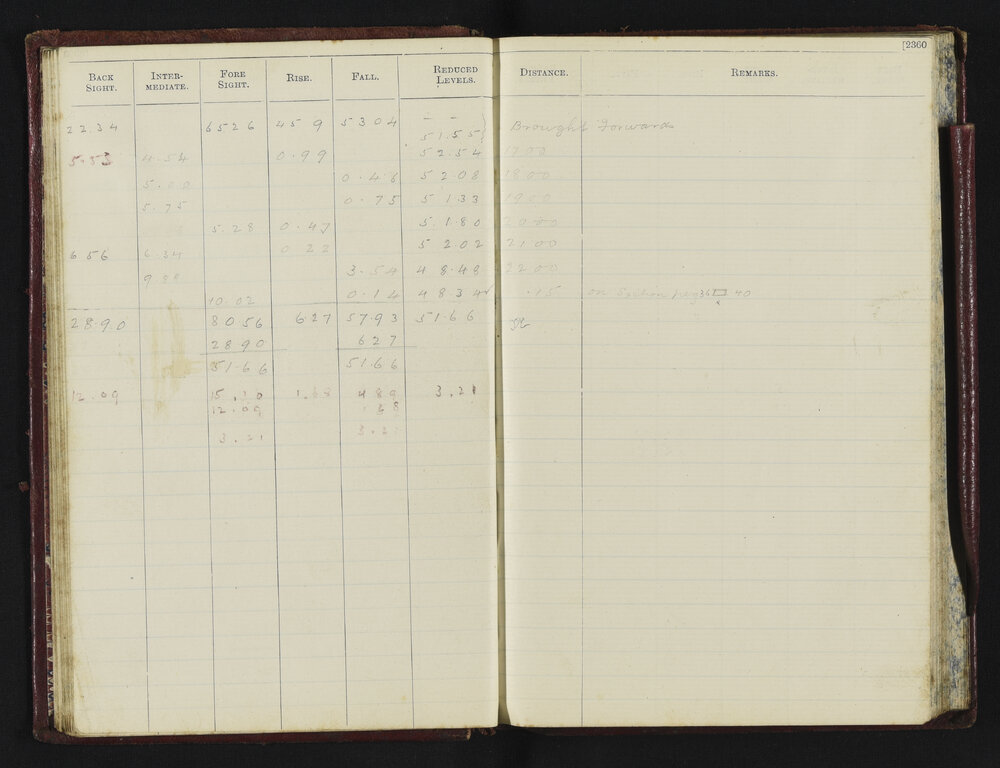 [2360
BACK SIGHT. INTER-MEDIATE. FORE SIGHT. RISE. FALL. REDUCED LEVELS. DISTANCE. REMARKS.
22.34 6526 459 5304 - -
51.55 Brought Forward
5.53 4.54 0.99 52.54 1700
5.00 0.46 52.08 1800
5.75 0.75 51.33 1900
5.28 0.47 51.80 2000
6.56 6.34 0.22 52.02 2100
9.88 3.54 48.48 2200
10.02 0.14 48.34 .15 on 40
28.90 8056 6.27 57.93 51.66
2890 627
51.66 51.66
12.09 15.30 1.68 489 3.21
12.09
3.21 3.21